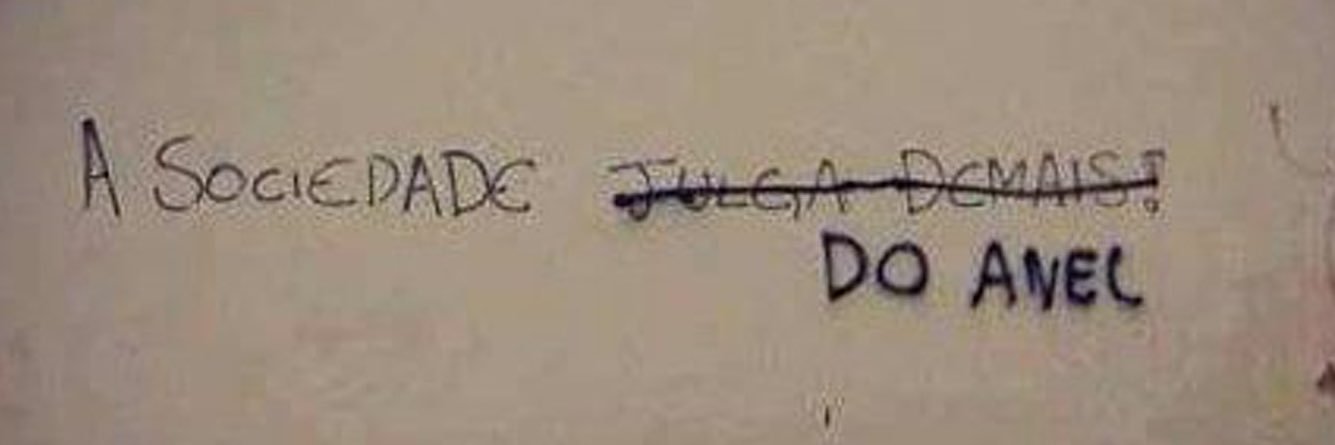 A SOCIEDADE JULGA DEMAIS!
DO ANEL